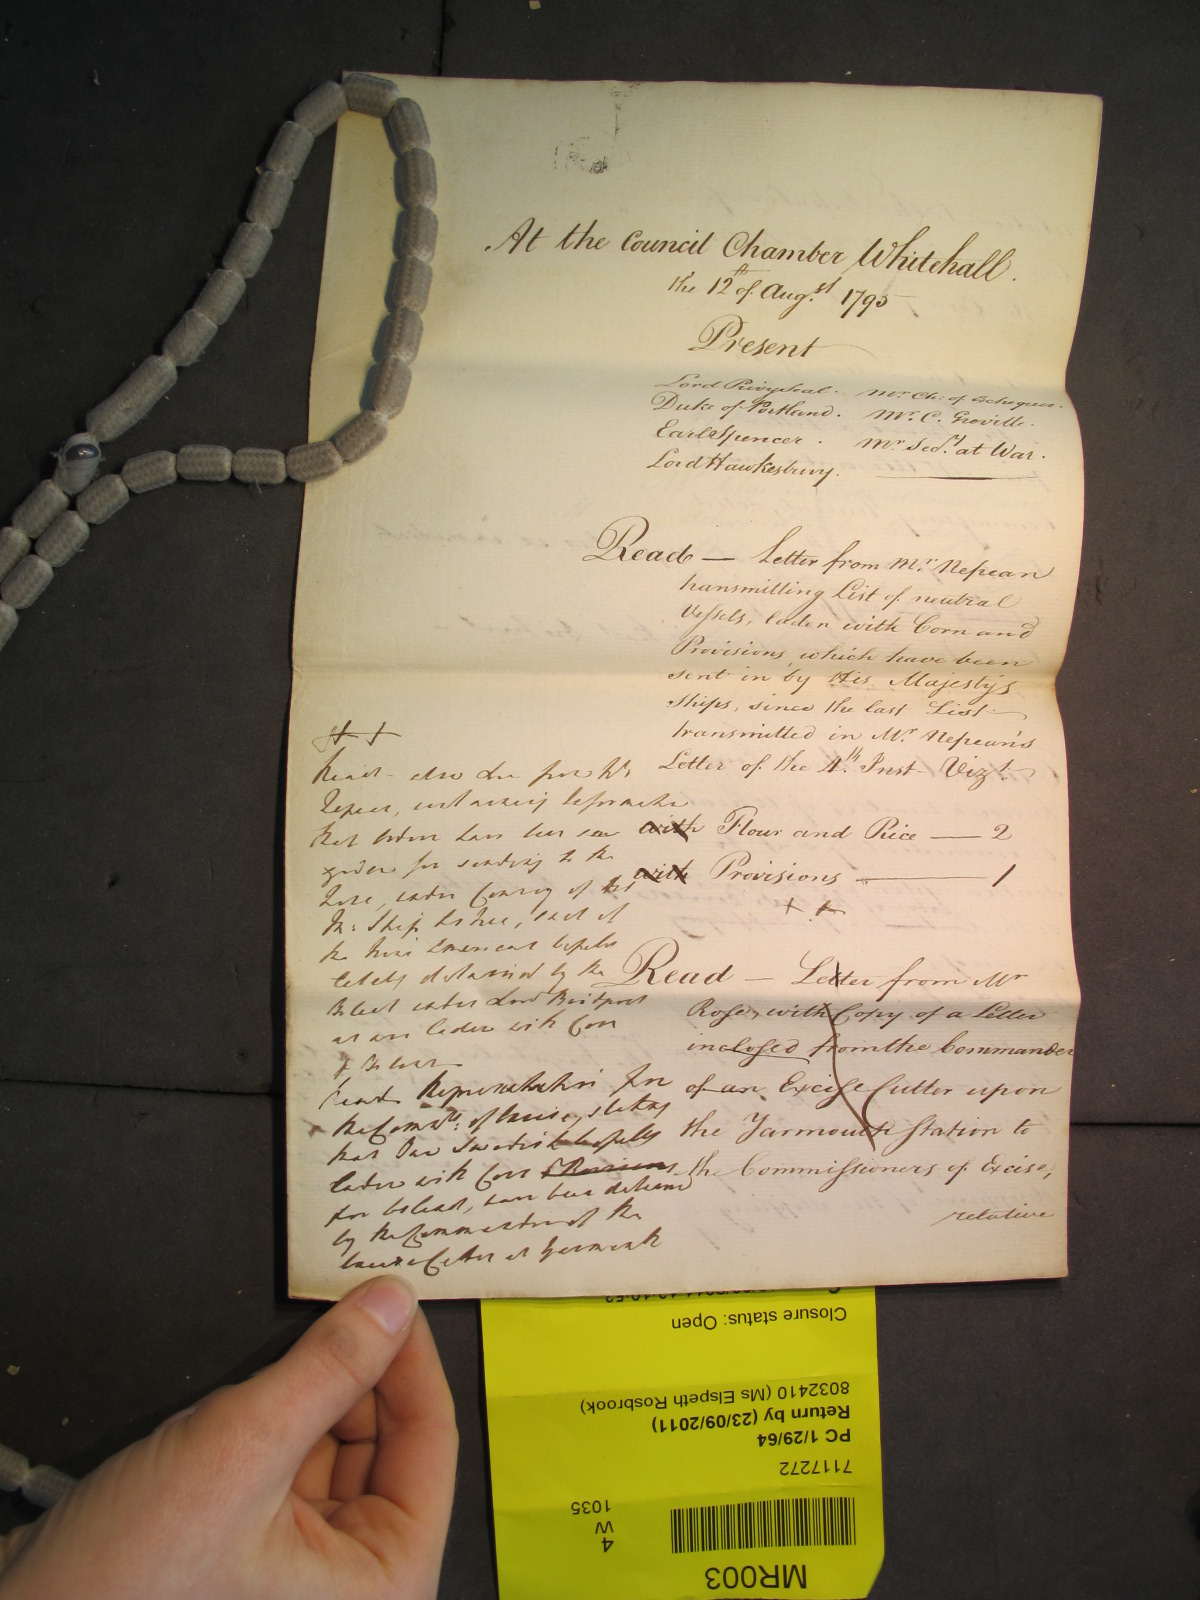 At the Council Chamber Whitehall.
the 12th of Augst. 1795
Present
Lord Privy Seal. Mr. Ch: of Exchequer.
Duke of Portland. Mr. C. Greville.
Earl Spencer. Mr. Secy. at War.
Lord Hawkesbury.
Read — Letter from Mr. Nepean
transmitting List of neutral
Vessels, laden with Corn and
Provisions, which have been
sent in by His Majesty's
Ships, since the last List
transmitted in Mr. Nepean's
Letter of the 4th. Inst Vizt.
with Flour and Rice — 2
with Provisions — 1
++
++
Read also from Mr
Nepean,
that orders have been
given for sending to the
Nore, under Convoy of His
M: Ship, each of
the American Vessels
lately detained by the
under Lord Bridport
as are laden with Corn
Read Representation from
the Commrs. of Excise, stating
that One Swedish Vessel
laden with Corn & Provisions
have been detained
by the Commander of the
Excise Cutter at Yarmouth
Read — Letter from Mr
Rose, with Copy of a Letter
inclosed from the Commander
of an Excise Cutter upon
the Yarmouth Station to
the Commissioners of Excise,
relative
Closure status: Open
8032410 (Ms Elspeth Rosbrook)
Return by (23/09/2011)
PC 1/29/64
7117272
4
W
1035
MR003